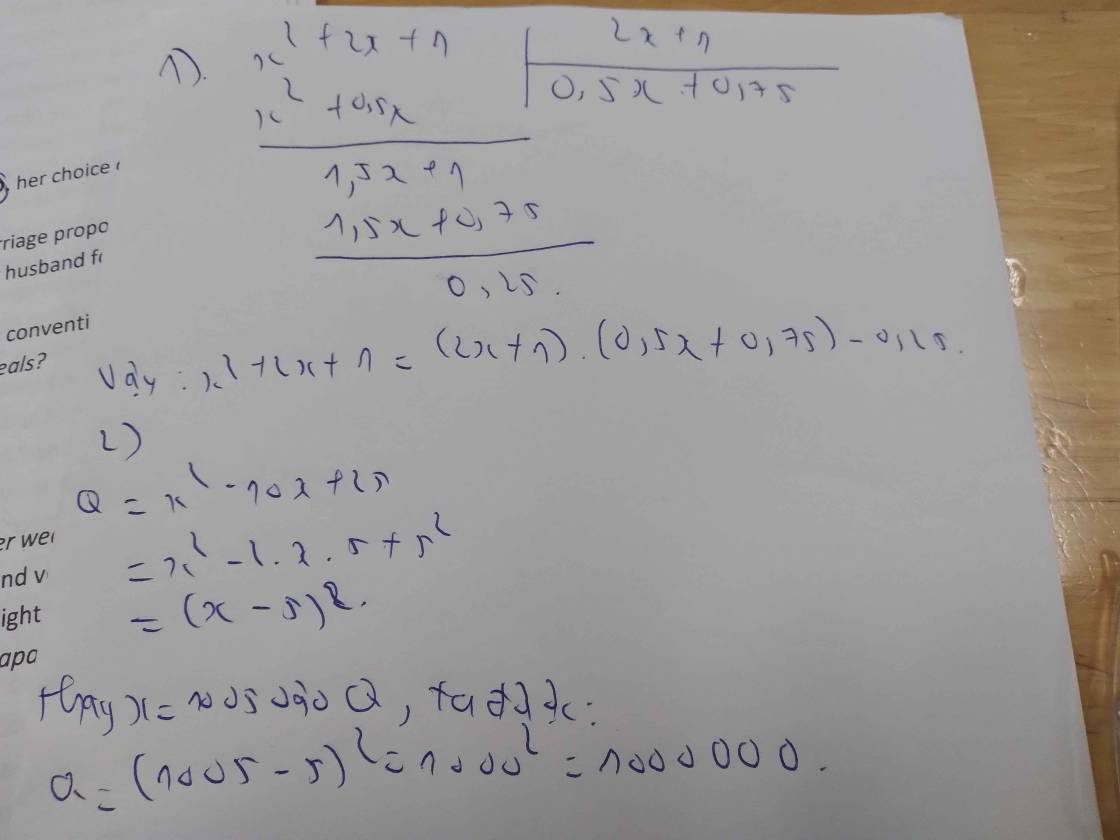 1). x² + 2x + 1 | 2x + 1
x² + 0,5x | 0,5x + 0,75
1,5x + 1
1,5x + 0,75
0,25.
Vậy : x² + 2x + 1 = (2x + 1) . (0,5x + 0,75) - 0,25.
2)
Q = x² - 10x + 25
= x² - 2 . x . 5 + 5²
= (x - 5)².
Thay x = 1005 vào Q, ta
Q = (1005 - 5)² = 1000² = 1000 000.
her choice
rriage propo
husband f
conventi
eals?
er we
nd v
ight
apa